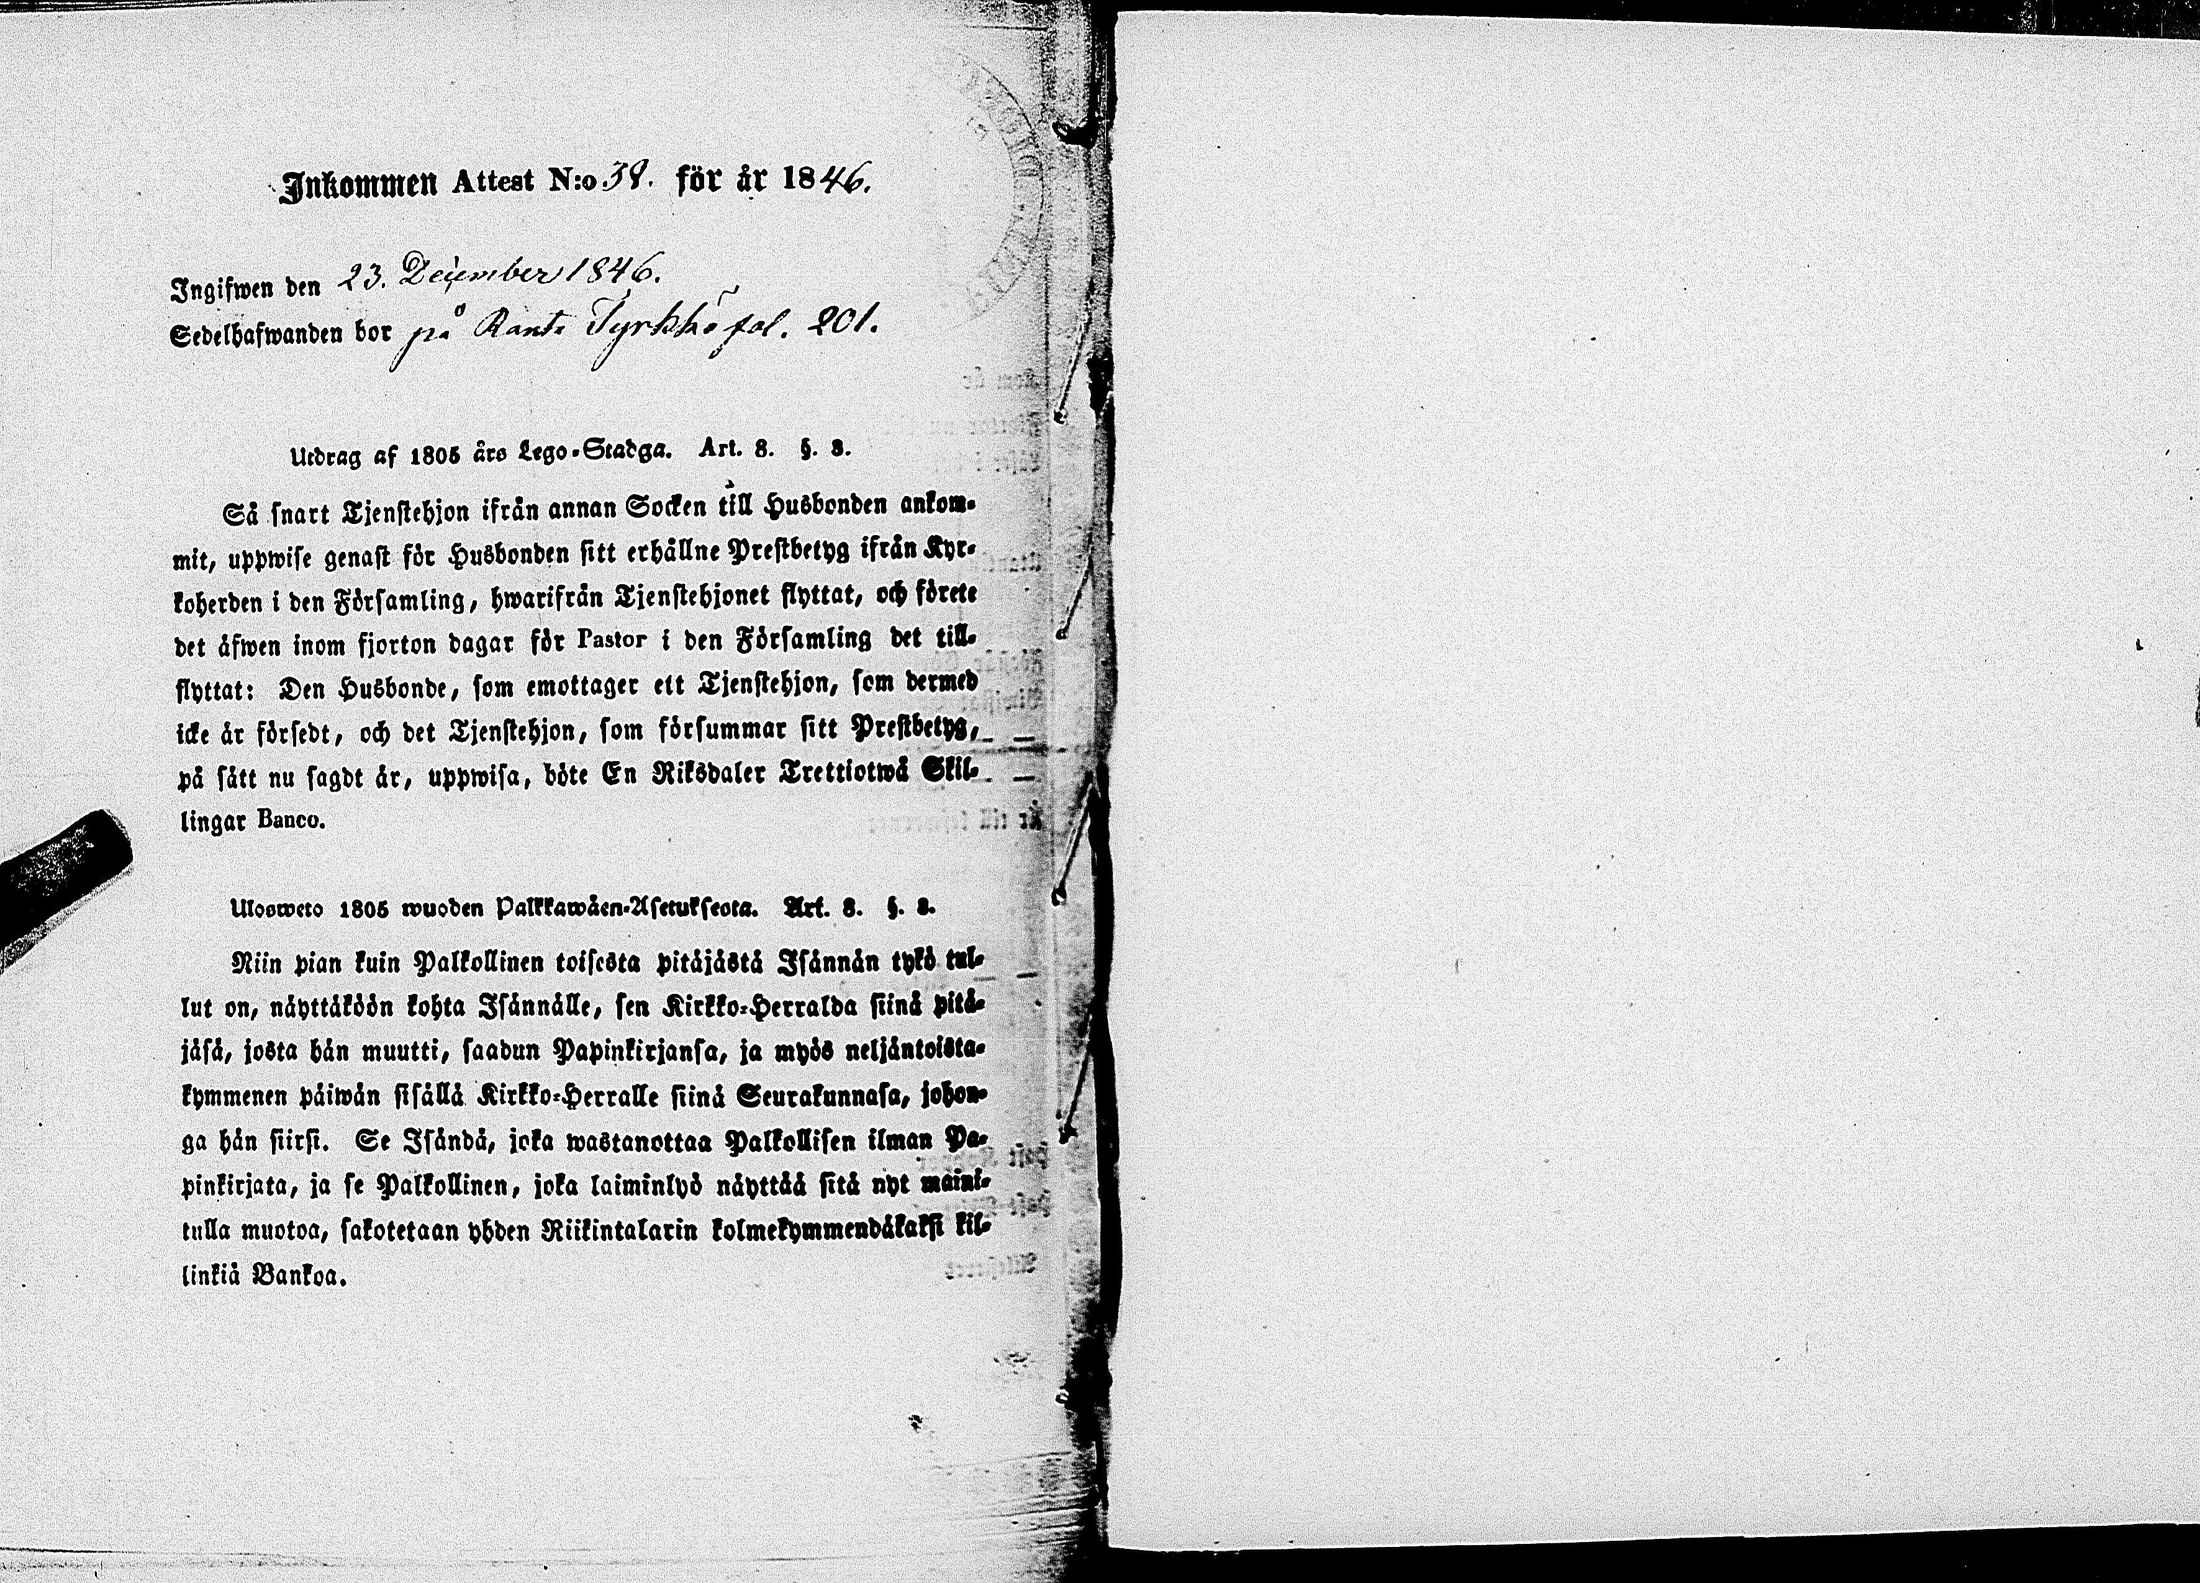 Inkommen Attest N:o 38. för år 1846.
Ingifwen den 23. December 1846.
Sedelhafwanden bor på Tyrkkö fol. 201.
Utdrag af 1805 års Lego-Stadga. Art. 8. §. 3.
Så snart Tjenstehjon ifrån annan Socken till Husbonden ankom-
mit, uppwise genast för Husbonden sitt erhållne Prestbetyg ifrån Kyr-
koherden i den Församling, hwarifrån Tjenstehjonet flyttat, och förete
det äfwen inom fjorton dagar för Pastor i den Församling det till-
flyttat: Den Husbonde, som emottager ett Tjenstehjon, som dermed
icke är försedt, och det Tjenstehjon, som försummar sitt Prestbetyg,
på sätt nu sagdt är, uppwisa, böte En Riksdaler Trettiotwå Skil-
lingar Banco.
Uloswcto 1805 wuoden Palkkawäen-Asetuksesta. Art. 8. §. 3.
Niin pian kuin Palkollinen toisesta pitäjästä Isännän tykö tul-
lut on, näyttäköön kohta Isännälle, sen Kirkko-Herralda siinä pitä-
jäsä, josta hän muutti, saadun Papinkirjansa, ja myös neljäntoista-
kymmenen päiwän sisällä Kirkko-Herralle siinä Seurakunnasa, johon-
ga hän siirsi. Se Isändä, joka wastanottaa Palkollisen ilman Pa-
pinkirjata, ja se Palkollinen, joka laiminlyö näyttää sitä nyt maini-
tulla muotoa, sakotetaan yhden Riikintalarin kolmekymmendäkaksi kil-
linkiä Bankoa.